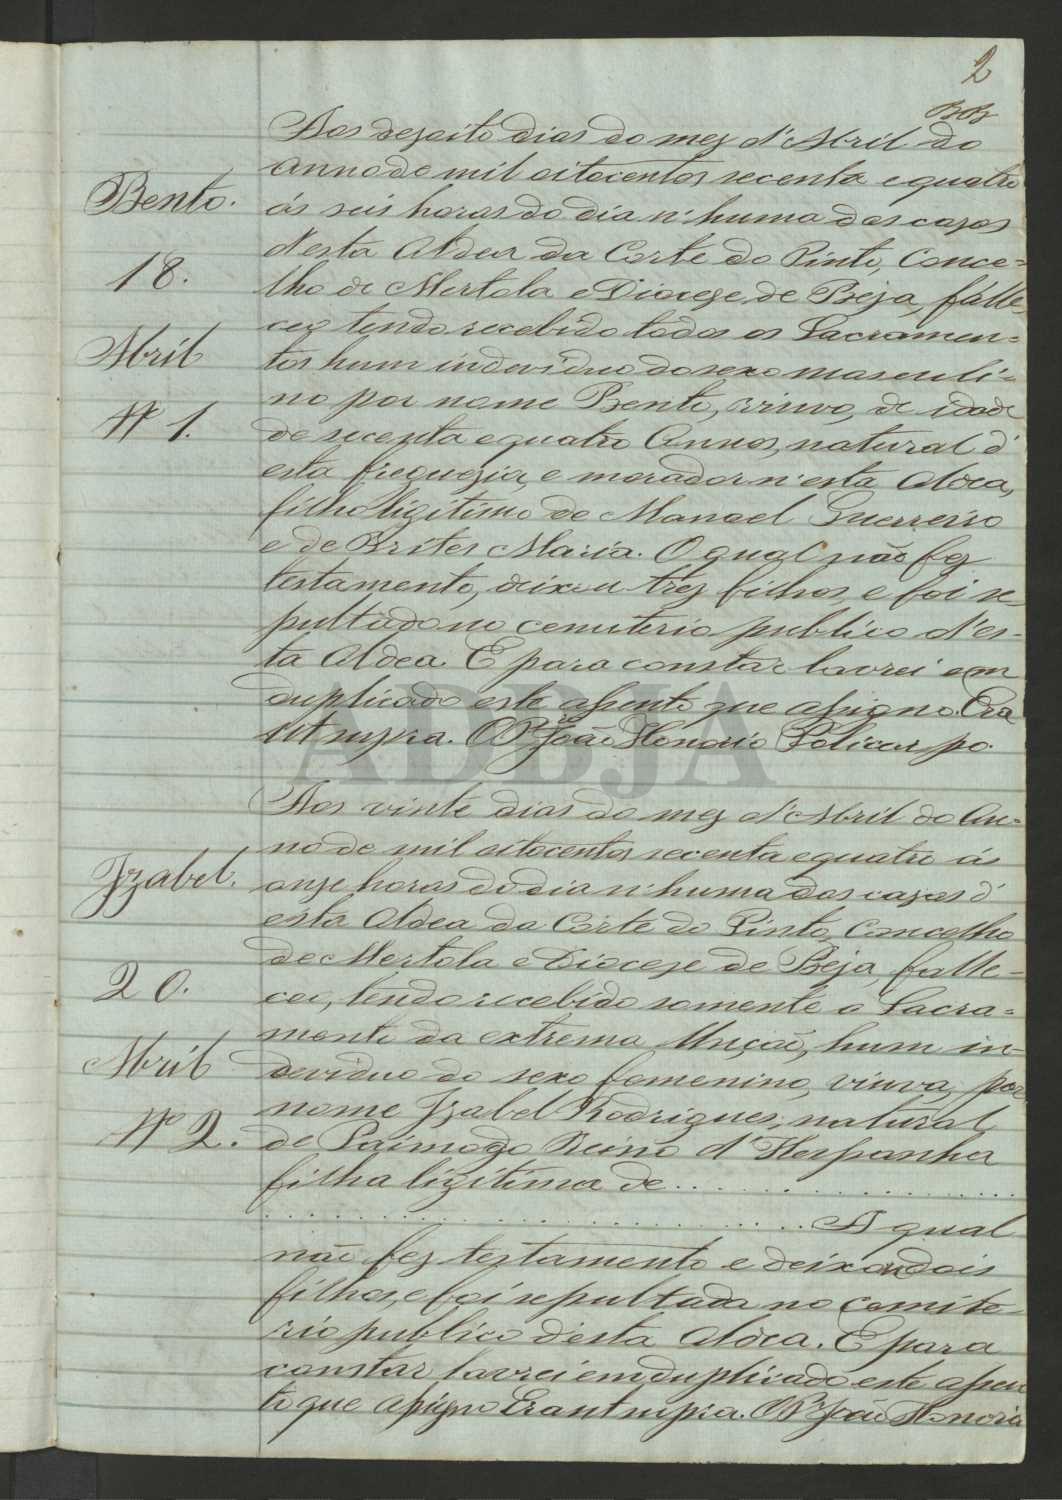 2
Aos dezoito dias do mez d'Abril do
anno de mil oitocentos secenta e quatro
Bento.
ás seis horas do dia n'huma das cazas
d'esta Aldea da Corte do Pinto, Conce=
18.
lho de Mertola e Dioceze de Beja, falle-
ceo tendo recebido todos os Sacramen=
Abril
tos hum individuo do sexo masculi=
no por nome Bento, viuvo, de idade
Nº 1.
de secenta e quatro Annos, natural d'
esta freguezia, e morador n'esta Aldea,
filho ligitimo de Manoel Guerreiro
e de Brites Maria. O qual não fez
testamento, deixou trez filhos, e foi se-
pultado no cemiterio publico d'es-
ta Aldea. E para constar lavrei em
duplicado este assento que assigno. Era
ut supra. O Pr. João Honorio Policarpo.
ADBJA
Aos vinte dias do mez d'Abril do An=
no de mil oitocentos secenta e quatro ás
Izabel.
onze horas do dia n'huma das cazas d'
esta Aldea da Corte do Pinto, Concelho
de Mertola e Dioceze de Beja, falle=
20.
ceo, tendo recebido somente o Sacra=
mento da extrema Unção, hum in-
Abril
deviduo do sexo femenino, viuva, por
nome Izabel Rodrigues, natural
Nº 2.
de Paimogo Reino d'Hespanha
filha ligitima de . . . . . . . . . . . .
. . . . . . . . . . . . . . . . . . . . A qual
não fez testamento e deixou dois
filhos, e foi sepultada no Cemite-
rio publico d'esta Aldea. E para
constar lavrei em duplicado este assen
to que assigno Era ut supra. O Pr. João Honorio